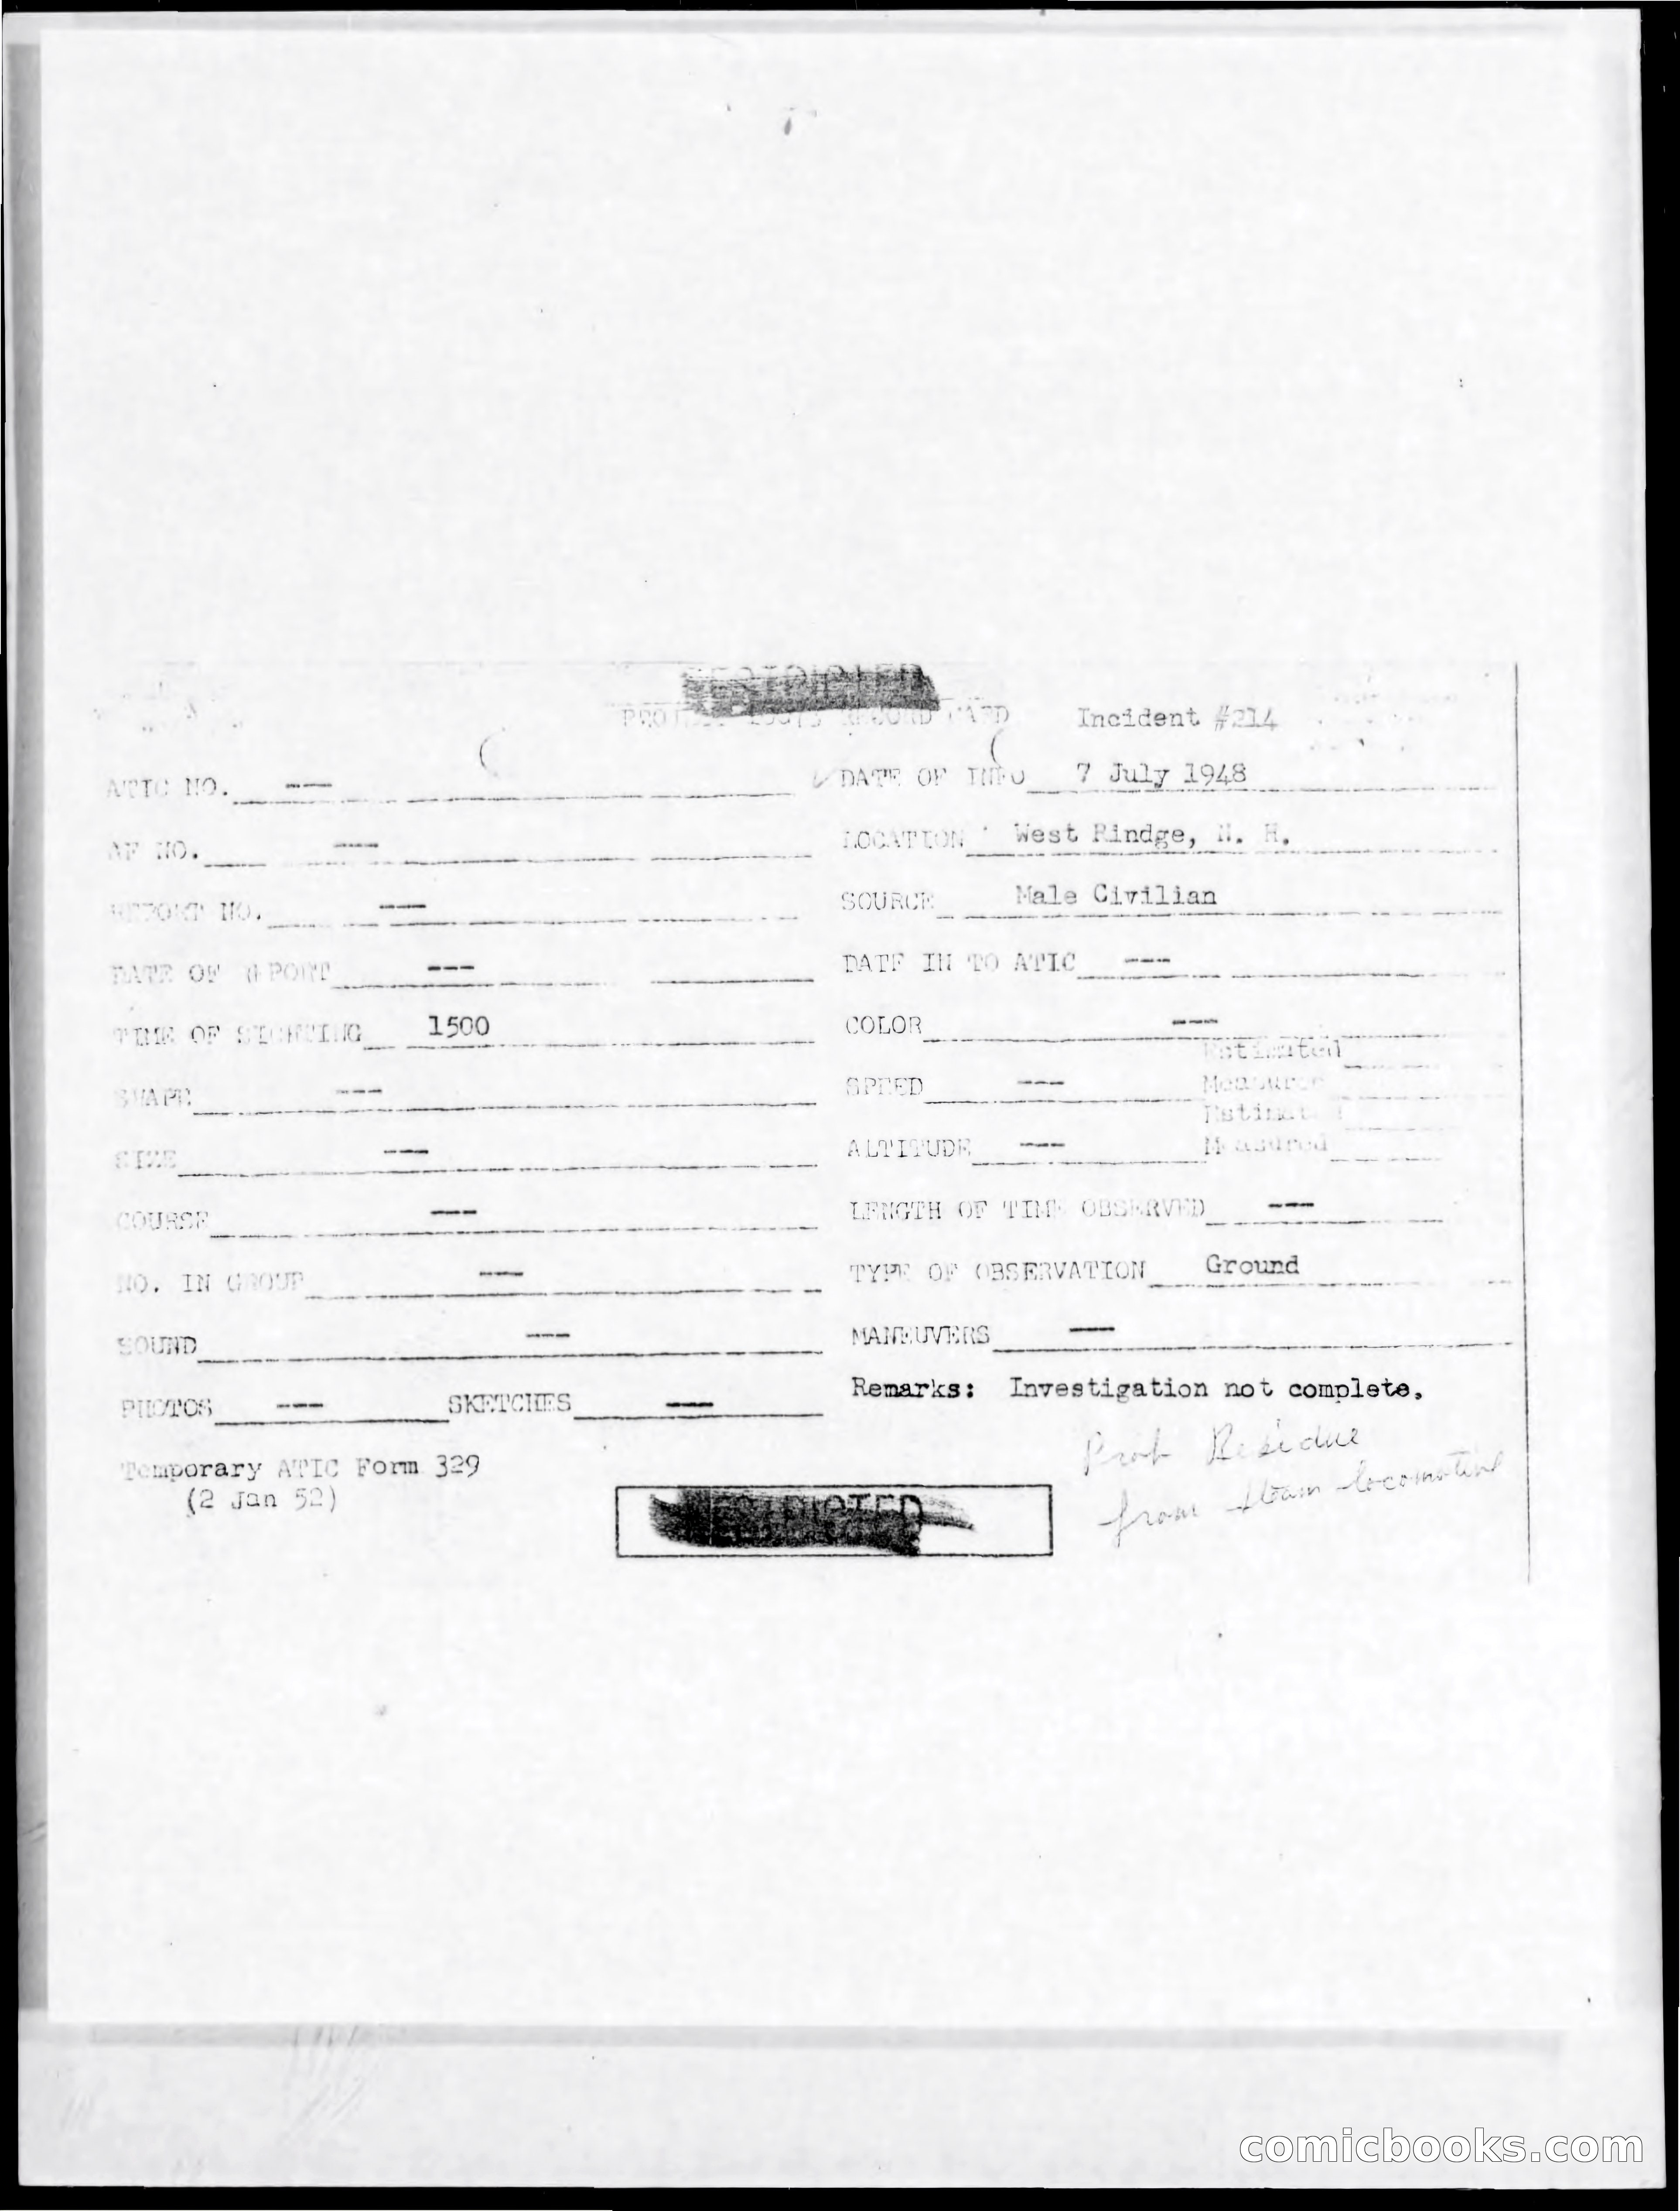 RESTRICTED
PROJECT 10073 RECORD CARD Incident #214
ATIC NO. --- DATE OF INFO 7 July 1948
AF NO. --- LOCATION West Rindge, N. H.
REPORT NO. --- SOURCE Male Civilian
DATE OF REPORT --- DATE IN TO ATIC ---
TIME OF SIGHTING 1500 COLOR ---
Estimated
SHAPE --- SPEED --- Measured
Estimated
SIZE --- ALTITUDE --- Measured
COURSE --- LENGTH OF TIME OBSERVED ---
NO. IN GROUP --- TYPE OF OBSERVATION Ground
SOUND --- MANEUVERS ---
PHOTOS --- SKETCHES --- Remarks: Investigation not complete.
Prob Residue
from steam locomotive
Temporary ATIC Form 329
(2 Jan 52)
RESTRICTED
comicbooks.com